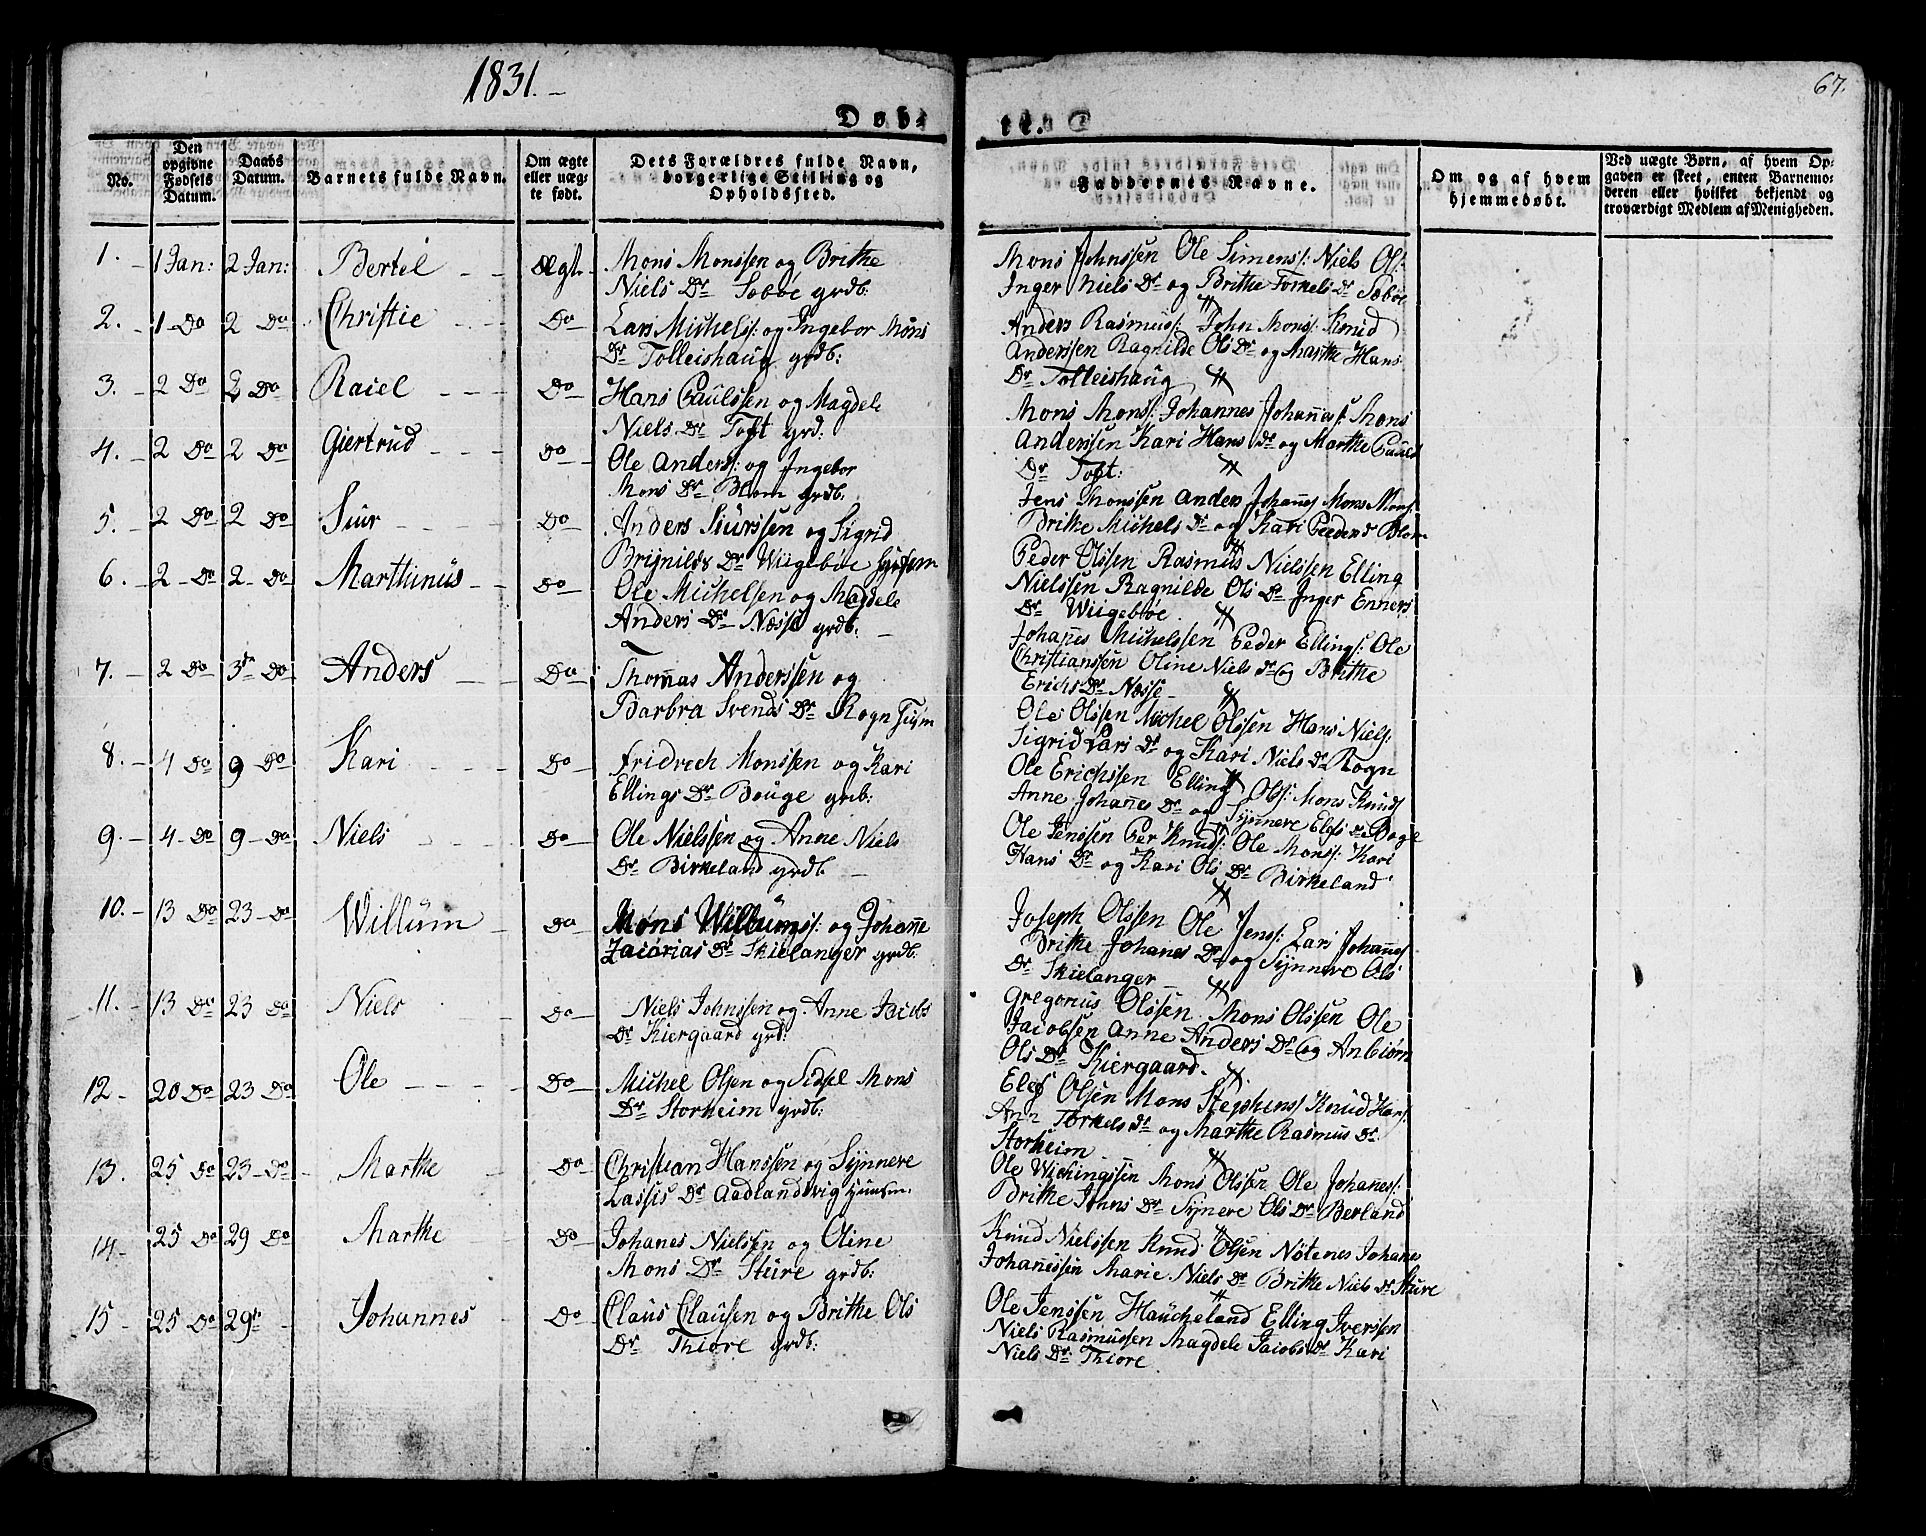 1831.
67.
Døbte.
No.
Den opgivne Fødsels Datum.
Daabs Datum.
Barnets fulde Navn.
Om ægte eller uægte født.
Dets Forældres fulde Navn, borgerlige Stilling og Opholdssted.
Faddernes Navne.
Om og af hvem hjemmedøbt.
Ved uægte Børn, af hvem Opgaven er skeet, enten Barnemoderen eller hvilket bekjendt og troværdigt Medlem af Menigheden.
1. 1 Jan: 2 Jan: Bertel Ægt.
Mons Monssen og Brithe
Niels Dr Sæbøe grdb:
Mons Johnssen Ole Simens: Niels Ols:
Inger Niels Dr og Brithe Torkels Dr Sæbøe
2. 1 Do 2 Do Christie Do
Lars Michels: og Ingebor Mons
Dr Tolleishaug grdb:
Anders Rasmus: John Mons: Knud
Anderssen Ragnilde Ols Dr og Marthe Hans
Dr Tolleishaug
3. 2 Do 2 Do Raiel Do
Hans Paulssen og Magdele
Niels Dr Toft grd:
Mons Mons: Johannes Johannes: Mons
Anderssen Kari Hans Dr og Marthe Pauls
Dr Toft:
4. 2 Do 2 Do Giertrud Do
Ole Anders: og Ingebor
Mons Dr Blom grdb.
Jens Monssen Anders Johannes Mons Mons:
Brithe Michels Dr og Kari Peders Dr Blom
5. 2 Do 2 Do Siur Do
Anders Siurssen og Sigrid
Brynilds Dr Wiigebøe
Peder Olssen Rasmus Nielssen Elling
Nielssen Ragnilde Ols Dr Inger Enners
Dr Wiigebøe.
6. 2 Do 2 Do Marthinus Do
Ole Michelsen og Magdele
Anders Dr Næsse grdb.
Johannes Michelssen Peder Ellings: Ole
Christianssen Oline Niels Dr og Brithe
Erichs Dr Næsse
7. 2 Do 3 Do Anders Do
Thommas Anderssen og
Barbra Svends Dr Rogn
Ole Olssen Michel Olssen Hans Niels:
Sigrid Lars Dr og Kari Niels Dr Rogn
8. 4 Do 9 Do Kari Do
Fridrech Monssen og Kari
Ellings Dr Bouge grdb:
Ole Erichssen Elling Ols: Mons Knuds
Anne Johannes Dr og Synnere Elefs Dr Boge
9. 4 Do 9 Do Niels Do
Ole Nielssen og Anne Niels
Dr Birkeland grdb.
Ole Jenssen Per Knuds: Ole Mons: Kari
Hans Dr og Kari Ols Dr Birkeland
10. 13 Do 23 Do Willum Do
Mons Willums: og Johanne
Zacarias Dr Skielanger grdb.
Joseph Olssen Ole Jens: Lars Johannes
Brithe Johanes Dr og Synnere Ols
Dr Skielanger
11. 13 Do 23 Do Niels Do
Niels Johnssen og Anne Jacobs
Dr Kiergaard grd:
Gregorius Olssen Mons Olssen Ole
Jacobsen Anne Anders Dr og Anbiørn
Ols Dr Kiergaard.
12. 20 Do 23 Do Ole Do
Michel Olsen og Sidsel Mons
Dr Storheim grdb:
Elef Olsen Mons Stephens: Knud Hans:
Ann Torkels Dr og Marthe Rasmus Dr
Storheim
13. 25 Do 23 Do Marthe Do
Christian Hanssen og Synnere
Lassis Dr Aadlandsvig
Ole Wichingssen Mons Olssen Ole Johanes:
Brithe Johns Dr Synere Ols Dr Berland
14. 25 Do 29 Do Marthe Do
Johanes Nielssen og Oline
Mons Dr Sture grdb:
Knud Nielssen Knud Olsen Nötenes Johanes
Johannessen Marie Niels Dr Brithe Niels Dr Sture
15. 25 Do 29 Johannes Do
Claus Clausen og Brithe Ols
Dr Thiore grdb:
Ole Jenssen Haucheland Elling Iverssen
Niels Rasmussen Magdele Jacobs Dr Kari
Niels Dr Thiore